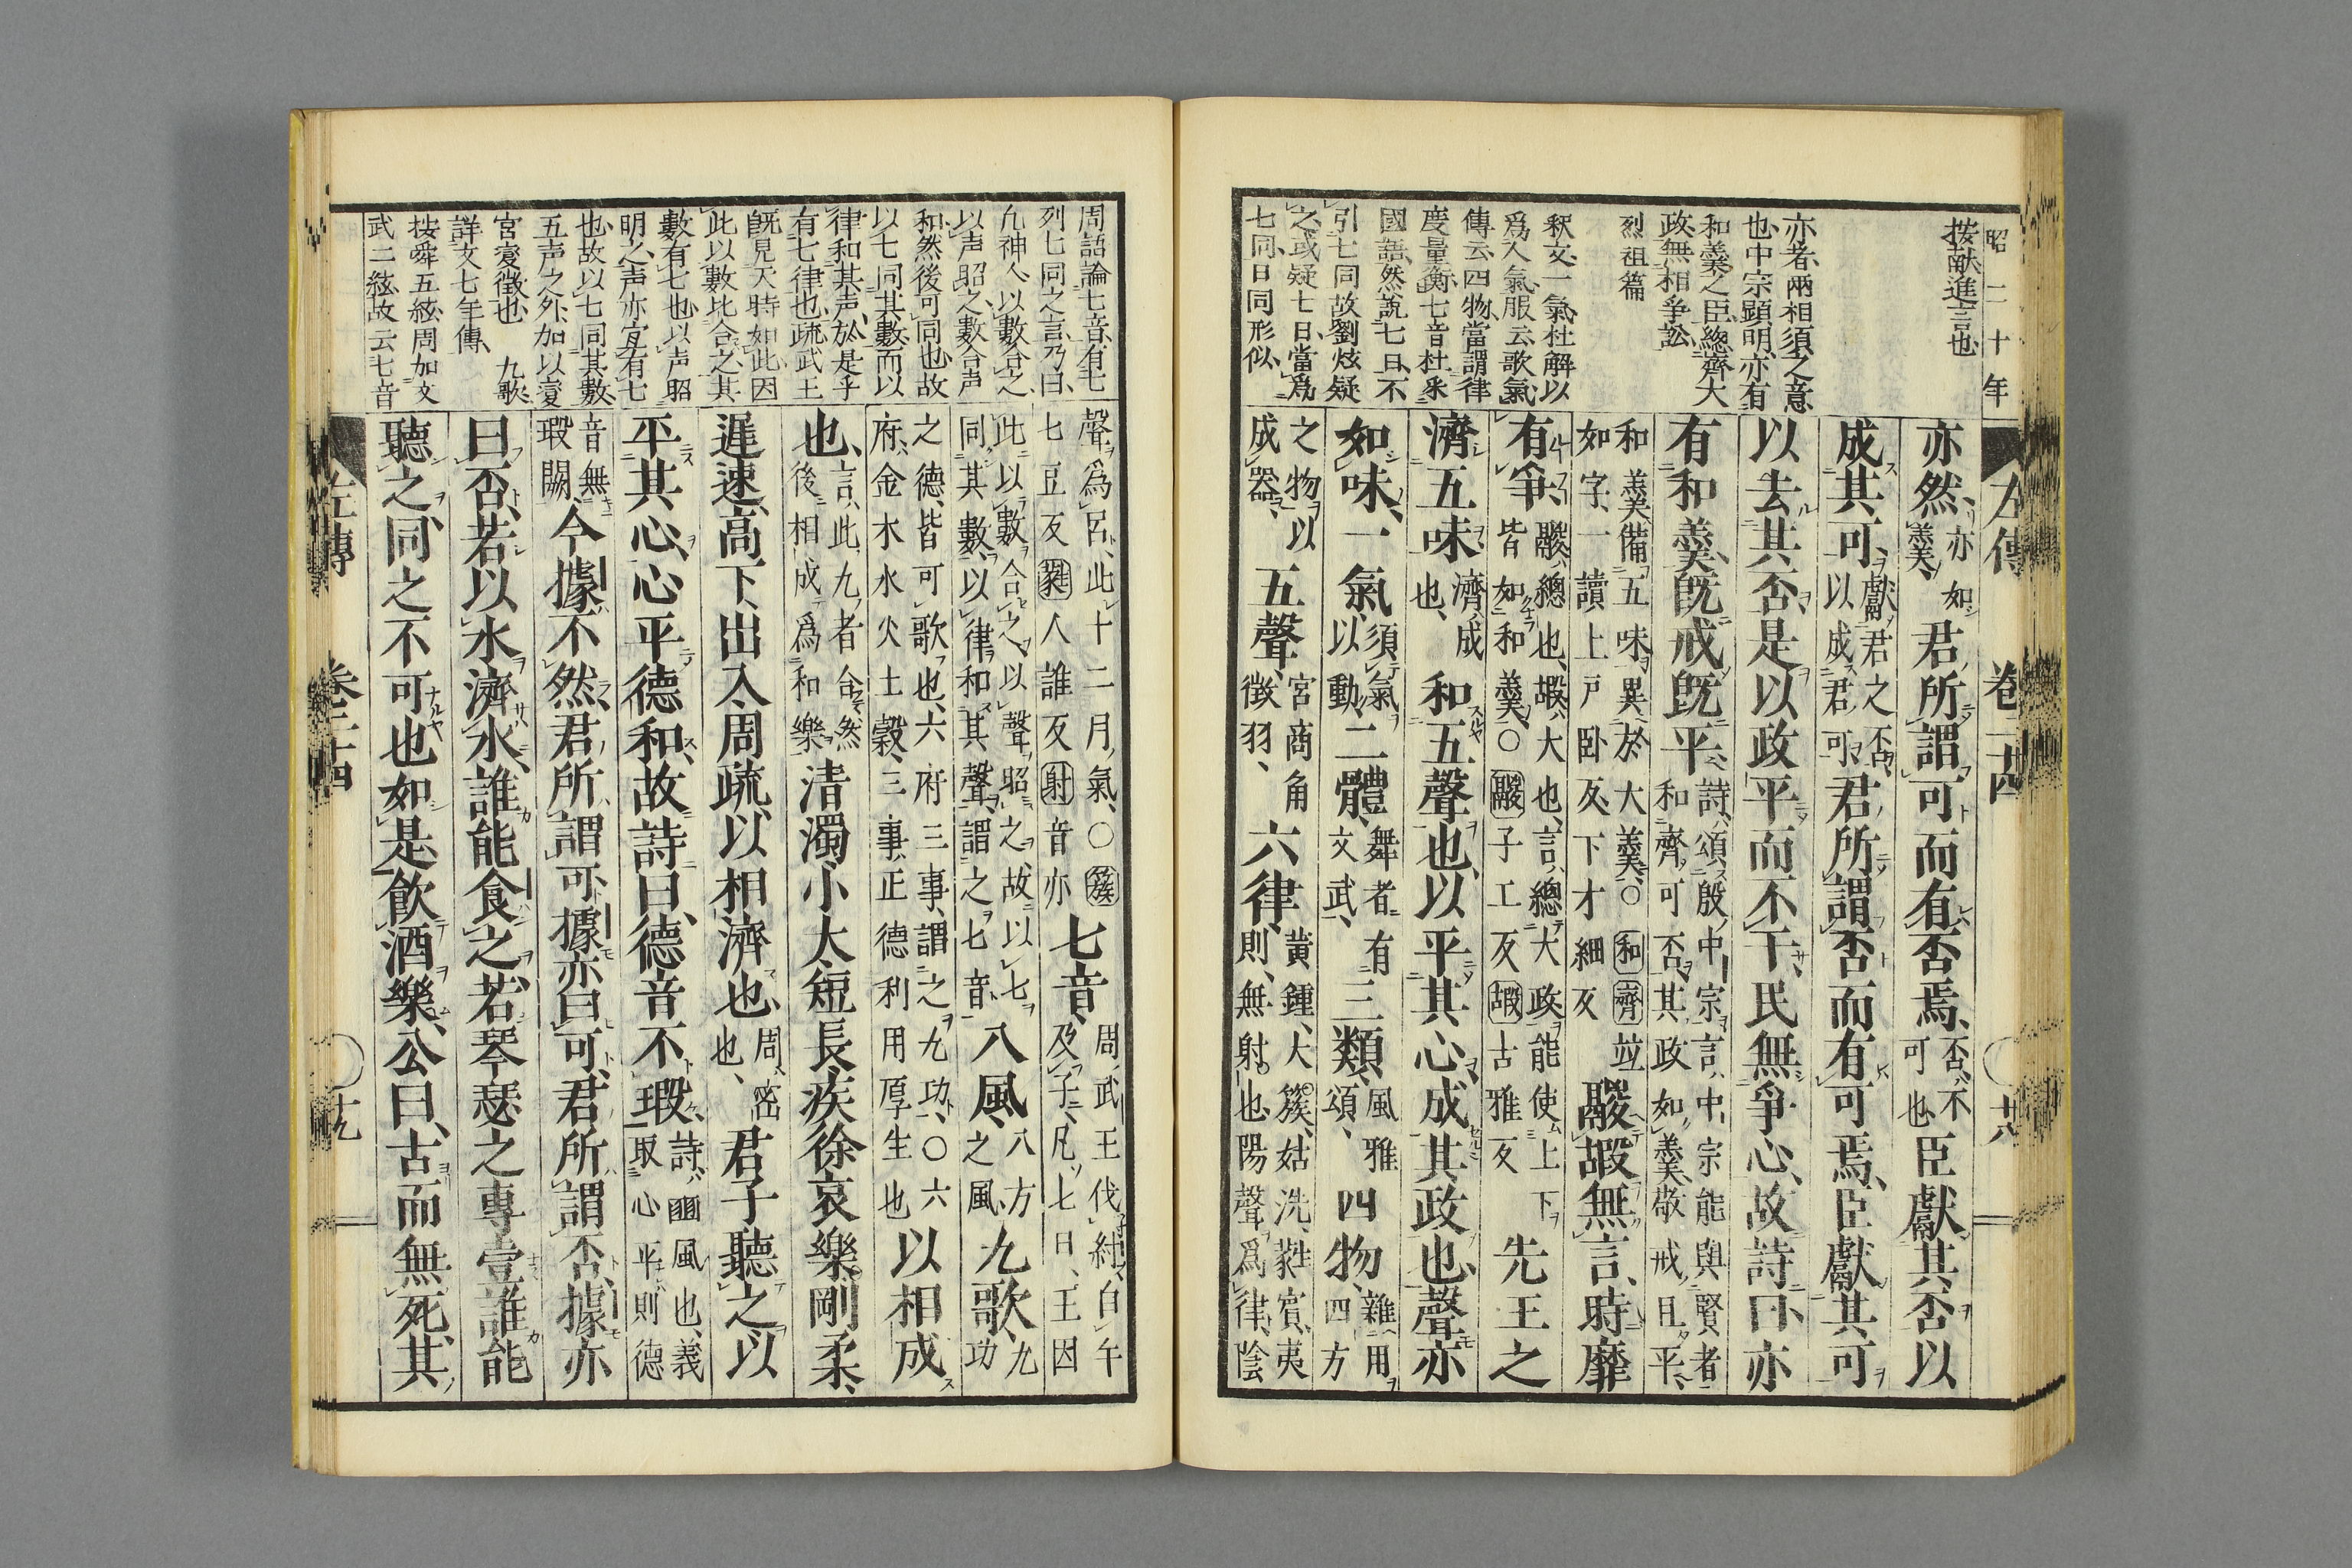 昭二十年
左傳　卷二十四　十八
按獻進言也
亦者兩相須之意
也中宗顯明亦有
和羹之臣總齊大
政無相爭訟
烈祖篇
釈文一氣杜解以
爲人氣服云歌氣
傳云四物當謂律
度量衡七音杜釆
國語然說七日不
引七同故劉炫疑
之或疑七日當爲
七同日同形似
亦然、亦如羹、君所謂可而有否焉、否不可也、臣獻其否以
成其可、獻君之否以成君可君所謂否而有可焉、臣獻其可
以去其否、是以政平而不干、民無爭心、故詩曰、亦
有和羹、旣戒旣平、詩頌殷中宗言中宗能與賢者和齊可否其政如羹敬戒且平
和羹備五味異於大羹○和齊竝如字一讀上戸卧反下才細反鬷嘏無言、時靡
有爭、鬷總也嘏大也言總大政能使上下皆如和羹○鬷子工反嘏古雅反先王之
濟五味、濟成也、和五聲也、以平其心、成其政也、聲亦
如味、一氣、須氣以動、二體、舞者有文武、三類、風雅頌、四物、雜用四方
之物以成器、五聲、宮商角徵羽、六律、黄鍾大簇姑洗蕤賓夷則無射也陽聲爲律陰
周語論七音有七
列七同之言乃曰
九神人以數合之
以声昭之數合声
和然後可同也故
以七同其數而以
律和其声於是乎
有七律也疏武王
旣見天時如此因
此以數比合之其
數有七也以声昭
明之声亦宜有七
也故以七同其數
五声之外加以変
宮変徵也　九歌
詳文七年傳
按舜五絃周加文
武二絃故云七音
聲爲呂、此十二月氣、○簇七豆反蕤人誰反射音亦七音、周武王伐紂自午及子凡七日、王因
此以數合之以聲昭之故以七同其數以律和其聲謂之七音八風、八方之風、九歌、九功
之德皆可歌也六府三事謂之九功、○六府金木水火土穀三事正德利用厚生也以相成
也、言此九者合然後相成爲和樂清濁小大短長疾徐哀樂剛柔、
遲速、高下、出入、周疏、以相濟也、周密也、君子聽之以
平其心、心平德和、故詩曰、德音不瑕、詩豳風也義取心平則德
音無瑕闕今據不然、君所謂可據亦曰可、君所謂否據亦
曰否、若以水濟水、誰能食之、若琴瑟之專壹誰能
聽之、同之不可也如是、飮酒樂、公曰、古而無死、其
左傳　卷二十四　十九